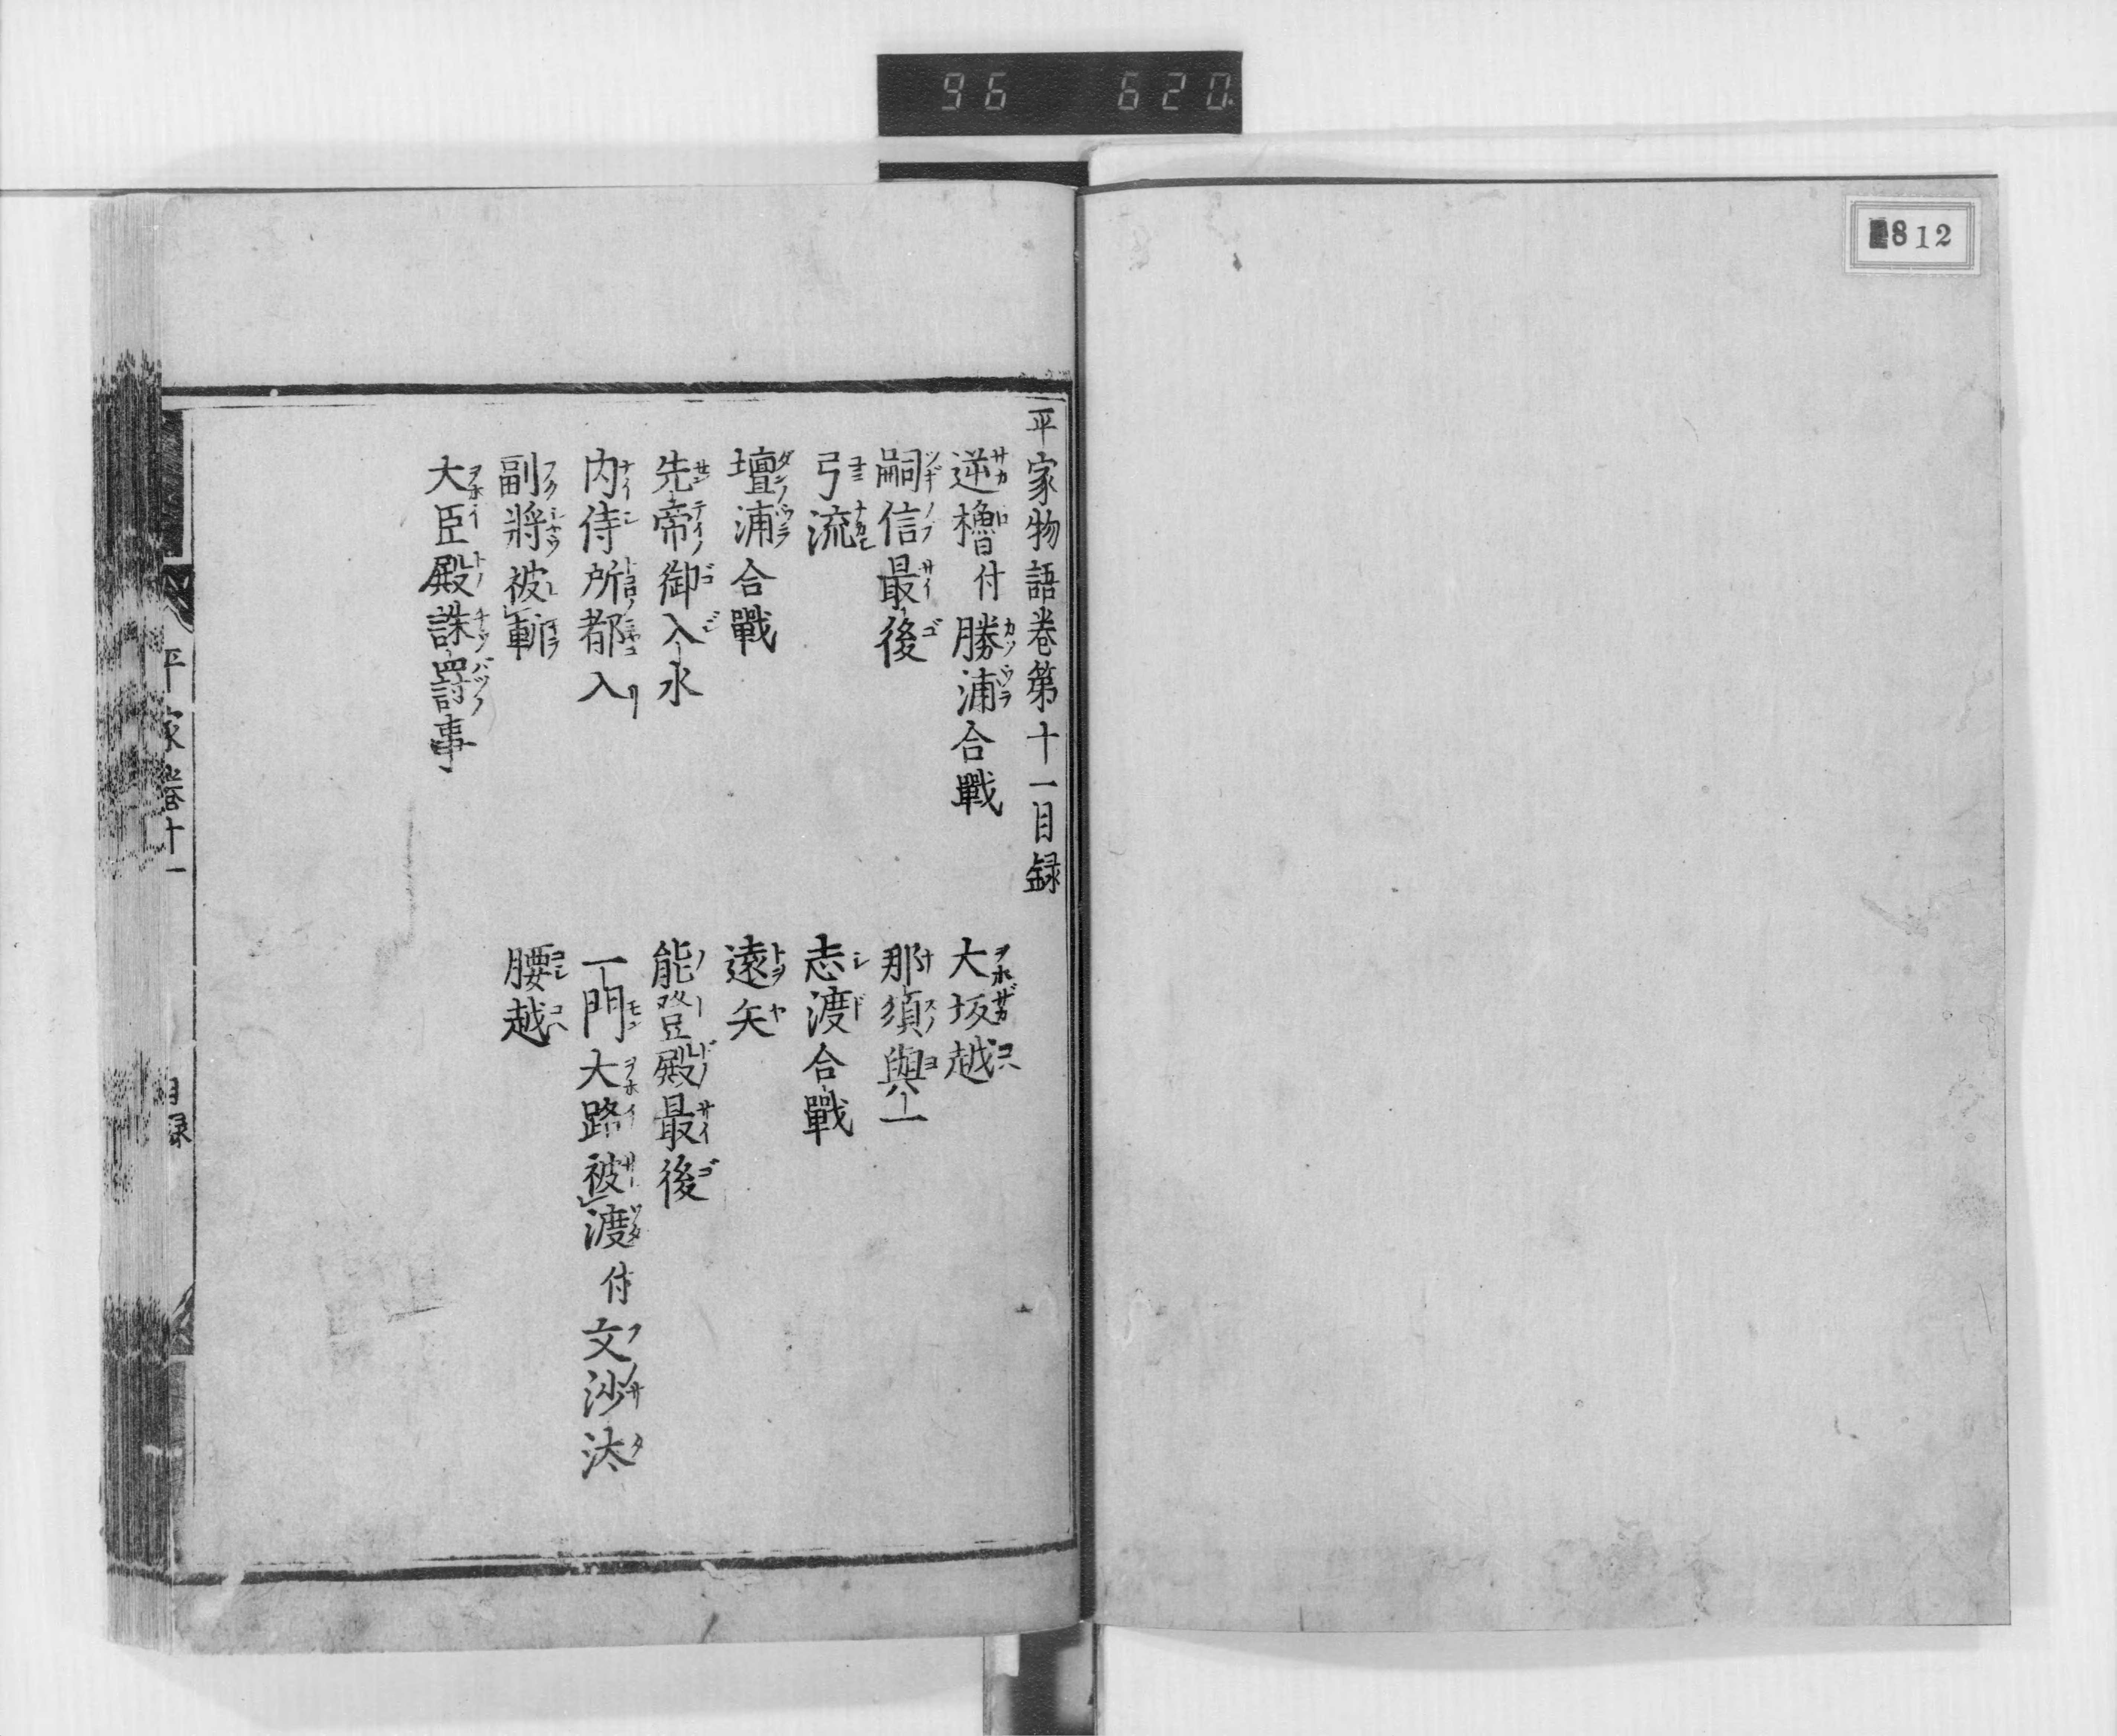 96 620
812
平家物語卷第十一目録
逆櫓付勝浦合戰
大坂越
嗣信最後
那須與一
弓流
志渡合戰
壇浦合戰
遠矢
先帝御入水
能登殿最後
内侍所都入
一門大路被渡付文沙汰
副將被斬
腰越
大臣殿誅罸事
平家卷十一
目録